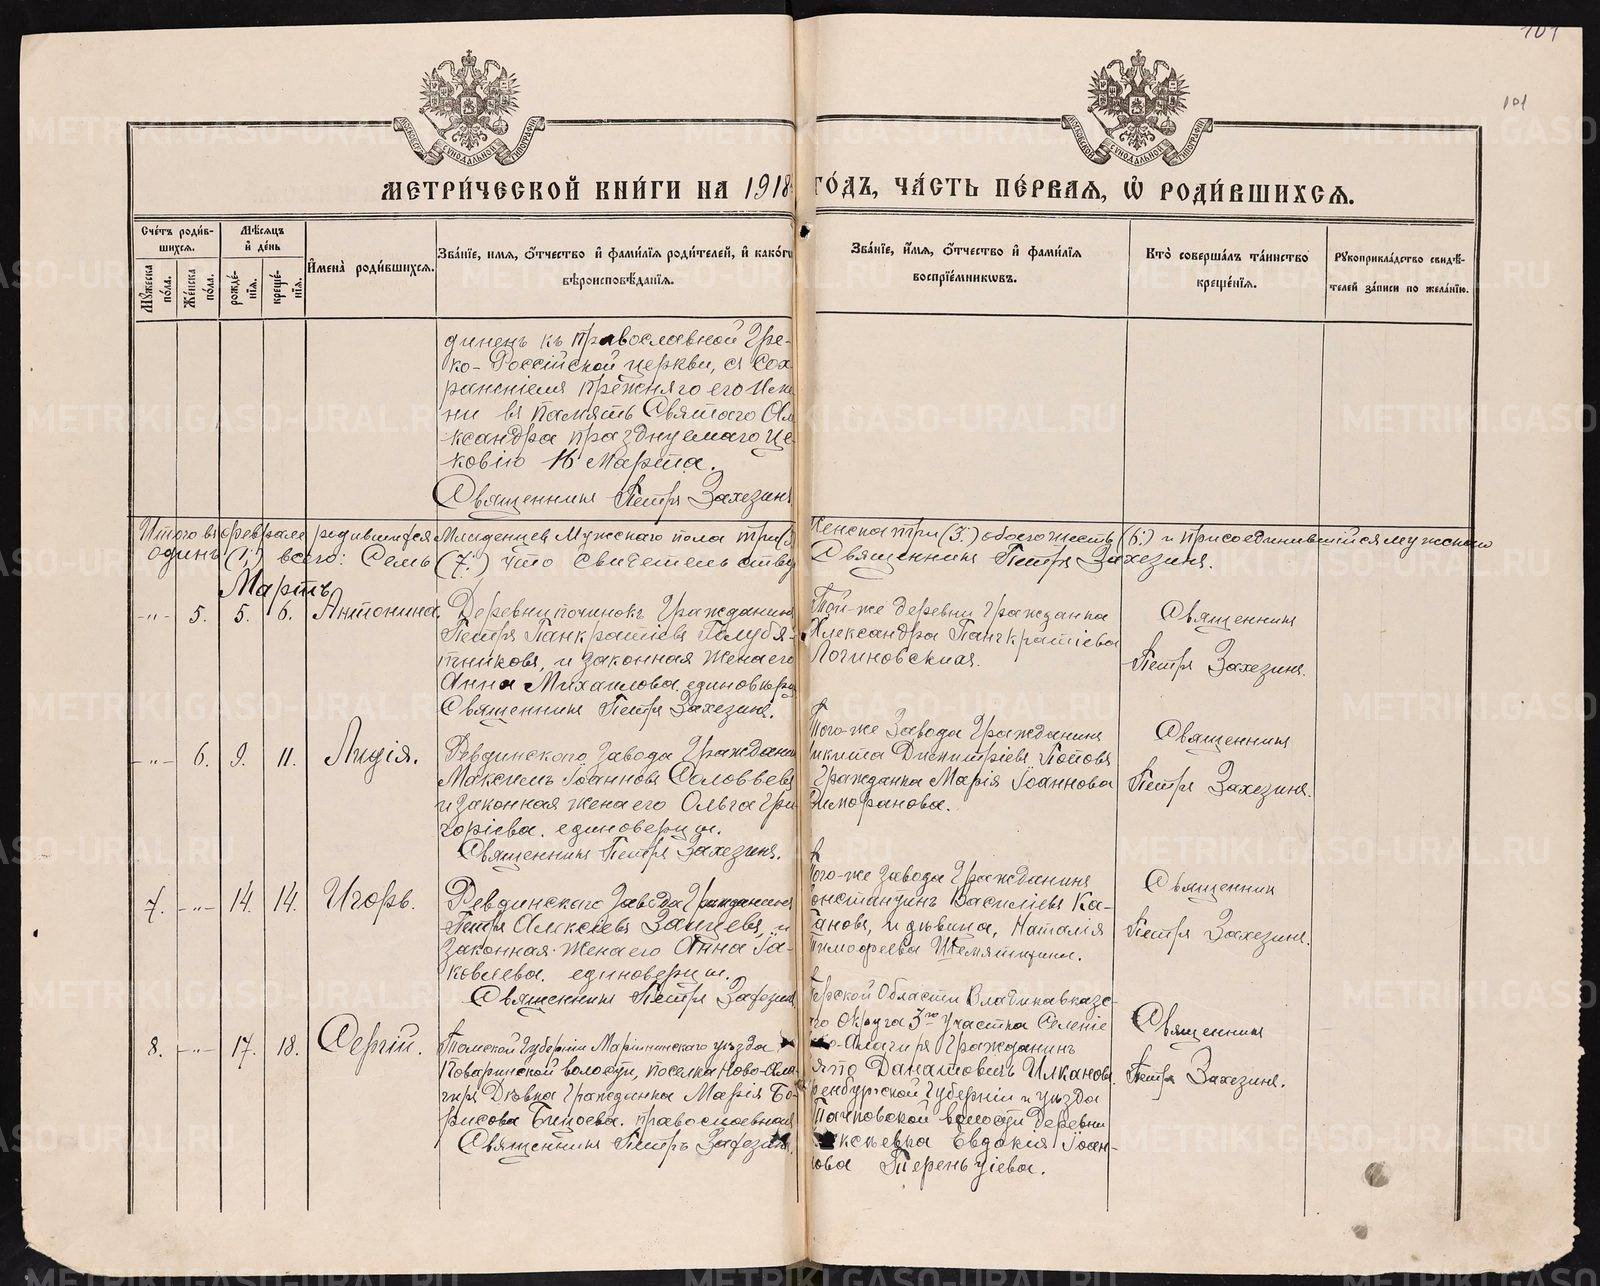 101
101
МОСКОВСКОЙ СУНОДАЛЬНОЙ ТИПОГРАФІИ
МОСКОВСКОЙ СУНОДАЛЬНОЙ ТИПОГРАФІИ
МЕТРИ́ЧЕСКОЙ КНИ́ГИ НА 1918 ГО́ДЪ, ЧА́СТЬ ПЕ́РВАЯ, Ѡ҆ РОДИ́ВШИХСЯ.
Сче́тъ роди́в-
шихся.
Мꙋ́жеска по́ла.
Же́нска по́ла.
Мѣ́сяцъ
и҆ де́нь
рожде́-
нїя.
креще́-
нїя.
И҆мена̀ роди́вшихся.
Зва́нїе, имя, ѻ҆́тчество и҆ фами́лїя роди́телей, и҆ како́гѡ
вѣроисповѣ́данїя.
Зва́нїе, и҆́мя, ѻ҆́тчество и҆ фами́лїя
воспрїе́мникѡвъ.
Кто̀ соверша́лъ та́инство
креще́нїя.
Рꙋкоприкла́дство свидѣ́-
телей за́писи по жела́нїю.
динень къ православной Гре-
ко-Россійской церкви, съ сох
раненіемъ прежняго его Име
ни въ память Святаго Ал
ксандра празднуемаго Це
ковію 16 Марта.
Священникъ Петръ Захезинъ
Итого въ феврале родившихся Младенцев Мужскаго пола три (3) Женска три (3.) обоего шесть (6.) и присоединившийся мужскаго
один (1.) всего: Семь (7.) что свидетельству
Священникъ Петръ Захезинъ.
Мартъ
-"- 5. 5. 6. Антонина.
Деревни починокъ Гражданинъ
Петръ Панкратіевъ Голубя-
тниковъ, и законная жена его
Анна Михаилова. единоверц
Священникъ Петръ Захезинъ.
Той-же деревни Гражданка
Александра Панкратіева
Логиновскихъ.
Священникъ
Петръ Захезинъ.
-"- 6. 9. 11. Лидія.
Ревдинскаго завода Граждани
Максимъ Іоанновъ Соловьевъ
и законная жена его Ольга Гри
горіева. единоверцы.
Священникъ Петръ Захезинъ.
Того-же Завода Гражданинъ
икита Димитріевъ Поповъ
Гражданка Марія Іоаннова
Священникъ
Петръ Захезинъ.
7. -"- 14. 14. Игорь.
Ревдинскаго Завода Гражданинъ
Петръ Алексіевъ Зайцевъ, и
Законная жена его Анна Іа-
ковлева. единоверцы.
Священникъ Петръ Захезинъ
ого-же завода Гражданинъ
онстантинъ Василіевъ Ка-
гановъ, и девица, Наталія
Тимофеева Шемятихина.
Священник
Петръ Захезинъ.
8. -"- 17. 18. Сергій.
Томской Губерніи Маріинскаго уѣзда
волости, поселка Ново-Ала-
гиръ Дѣвка Гражданка Марія Бо-
рисова православная
Священникъ Петръ Захезинъ.
Терской Области Владикавказс-
го Округа 3го участка Селеніе
Алагиръ Гражданинъ
Данатовичъ Илкановъ.
ренбургской Губерніи и уѣзда
волости Деревни
Евдакія Іоан-
нова Терентіева.
Священникъ
Петръ Захезинъ.
METRIKI.GASO-URAL.RU